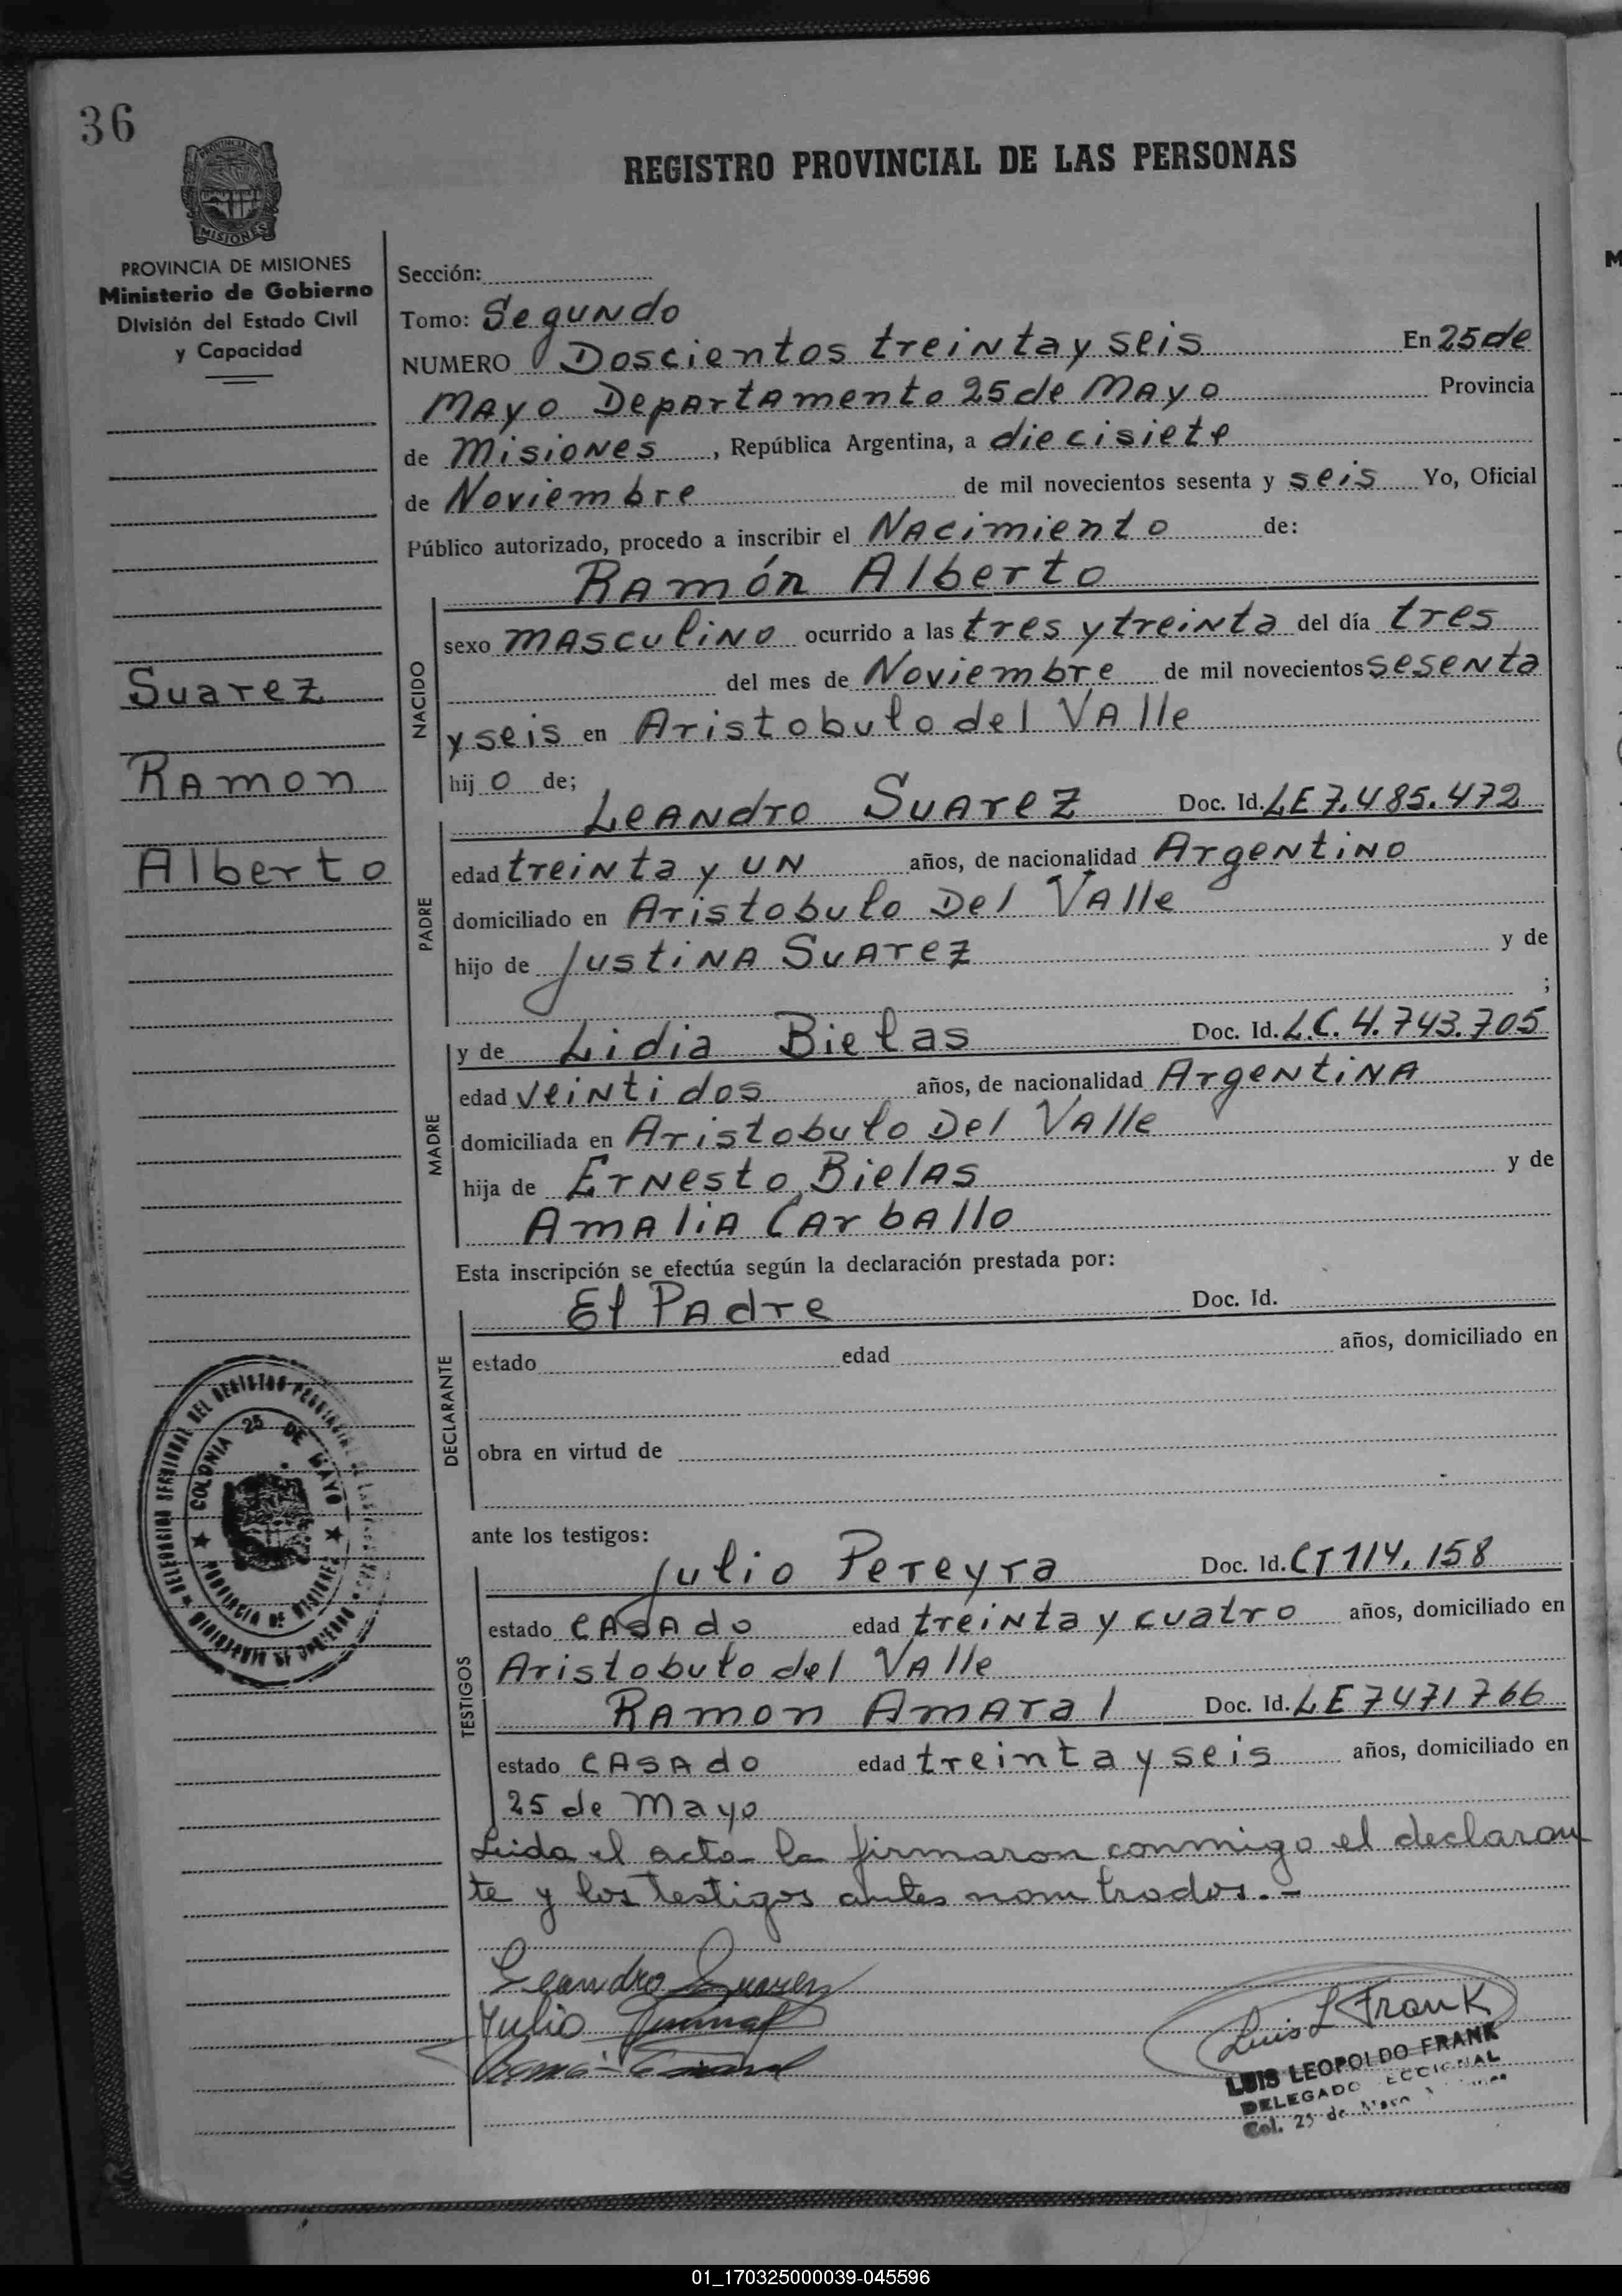 36
PROVINCIA DE
MISIONES
REGISTRO PROVINCIAL DE LAS PERSONAS
PROVINCIA DE MISIONES
Ministerio de Gobierno
División del Estado Civil
y Capacidad
Suarez
Ramon
Alberto
Sección:
Tomo: Segundo
NUMERO Doscientos treinta y seis En 25 de
Mayo Departamento 25 de Mayo Provincia
de Misiones, República Argentina, a diecisiete
de Noviembre de mil novecientos sesenta y seis Yo, Oficial
Público autorizado, procedo a inscribir el Nacimiento de:
Ramón Alberto
NACIDO
sexo masculino ocurrido a las tres y treinta del día tres
del mes de Noviembre de mil novecientos sesenta
y seis en Aristobulo del Valle
hijo de;
Leandro Suarez Doc. Id. LE 7.485.472
PADRE
edad treinta y un años, de nacionalidad Argentino
domiciliado en Aristobulo Del Valle
hijo de Justina Suarez y de
;
y de Lidia Bielas Doc. Id. L.C. 4.743.705
MADRE
edad veintidos años, de nacionalidad Argentina
domiciliada en Aristobulo Del Valle
hija de Ernesto Bielas y de
Amalia Carballo
Esta inscripción se efectúa según la declaración prestada por:
El Padre Doc. Id.
DECLARANTE
estado edad años, domiciliado en
obra en virtud de
ante los testigos:
Julio Pereyra Doc. Id. CI 114.158
TESTIGOS
estado casado edad treinta y cuatro años, domiciliado en
Aristobulo del Valle
Ramon Amaral Doc. Id. LE 7471766
estado casado edad treinta y seis años, domiciliado en
25 de Mayo
Leida el acta la firmaron conmigo el declaran
te y los testigos antes nombrados.-
Leandro Suarez
Julio
Luis L Frank
LUIS LEOPOLDO FRANK
DELEGADO
Col. 25 de Mayo
COLONIA 25 DE MAYO
PROVINCIA DE MISIONES
01_170325000039-045596